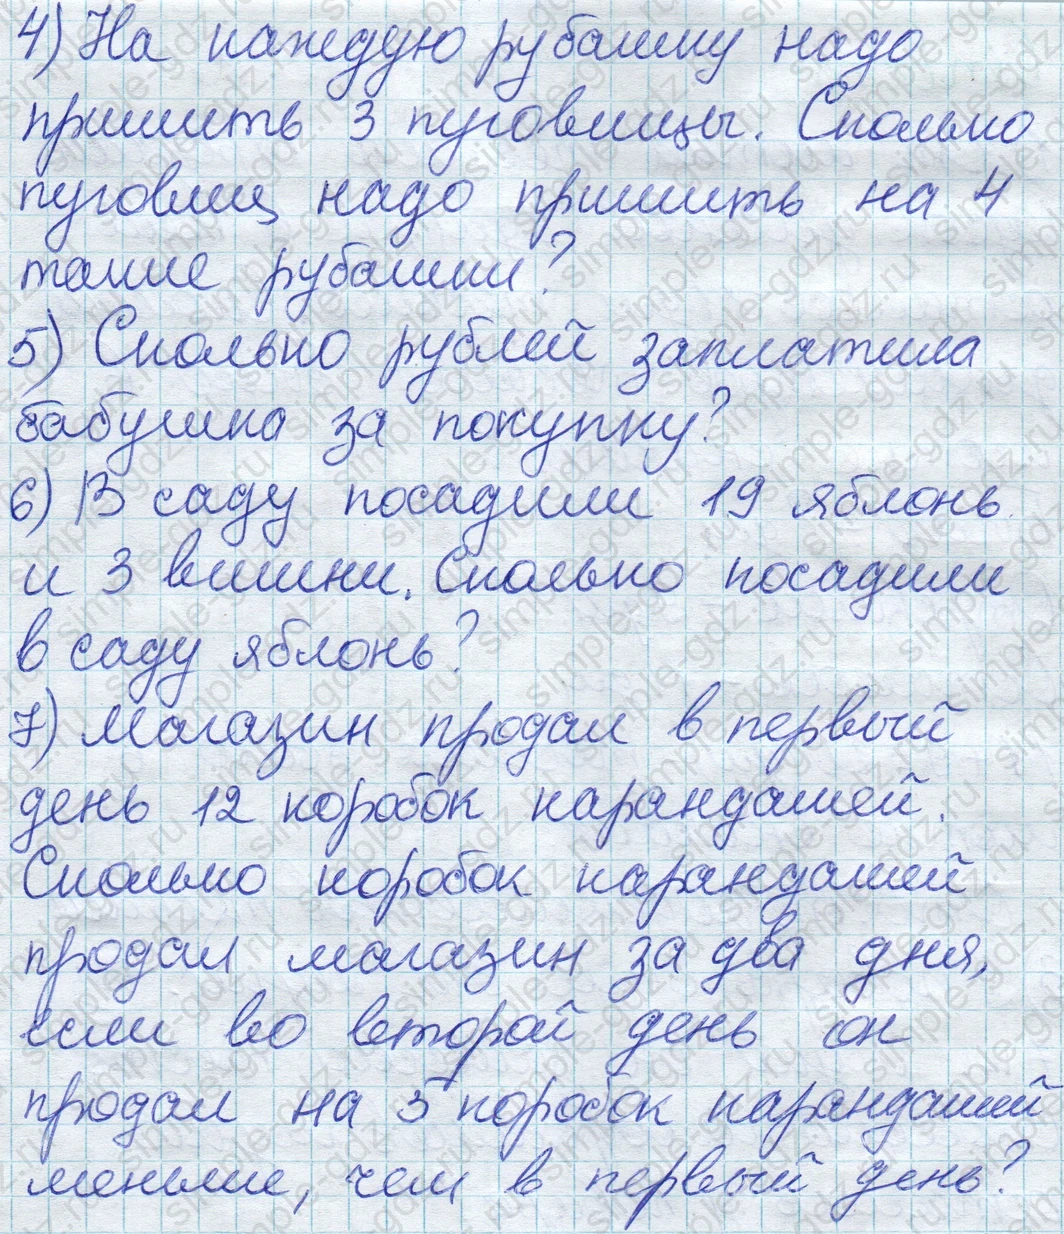 4) На каждую рубашку надо
пришить 3 пуговицы. Сколько
пуговиц надо пришить на 4
такие рубашки?
5) Сколько рублей заплатила
бабушка за покупку?
6) В саду посадили 19 яблонь
и 3 вишни. Сколько посадили
в саду яблонь?
7) Магазин продал в первый
день 12 коробок карандашей.
Сколько коробок карандашей
продал магазин за два дня,
если во второй день он
продал на 5 коробок карандашей
меньше, чем в первый день?
simple-gdz.ru